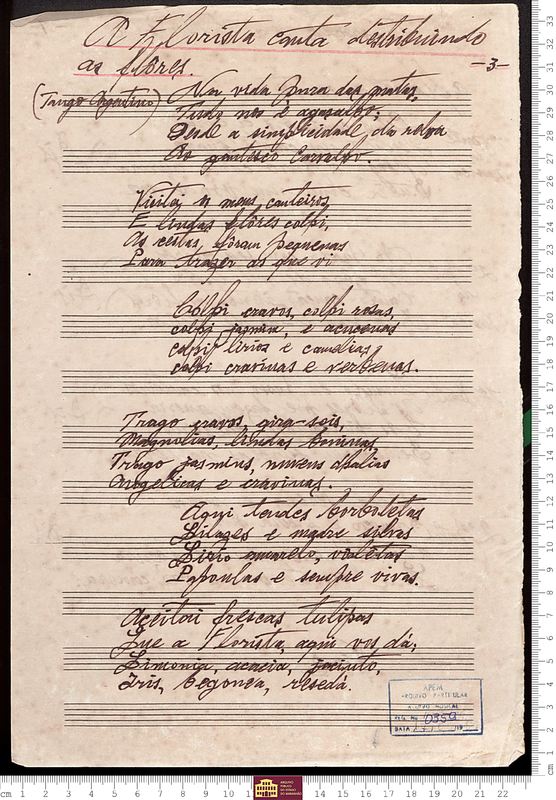 A Florista canta distribuindo
as flôres.
-3-
(Tango Argentino)
Na vida pura das matas,
Tudo nos é agasalho;
Desde a simplicidade da relva
Ao gantesco Carvalho.
Visitei n meus canteiros,
E lindas flôres colpi,
As cestas, fôram pequenas
Para trazer as que vi
Colpi cravos, colpi rosas,
colpi jasmin, e acucenas
colpi lirios e camelias,
colpi cravinas e verbenas.
Trago cravos, gira-sois,
Magnolias, lindas boninas,
Trago jasmins, nuveus dhalias
Angelicas e cravinas.
Aqui tendes borboletas
Lilazes e madre silvas
Lirio amarelo, violetas
Papoulas e sempre vivas.
Aceitai frescas tulipas
Que a Florista, aqui vos dá;
Simonia, acacia, jacinto,
Iris, begonea, resedá.
APEM
ARQUIVO PARTICULAR
ACERVO MUSICAL
REG. No 0359
DATA
cm 1 2 3 4 5 6 7 8 9 10 11 12 13 14 15 16 17 18 19 20 21 22
ARQUIVO PÚBLICO DO ESTADO DO MARANHÃO